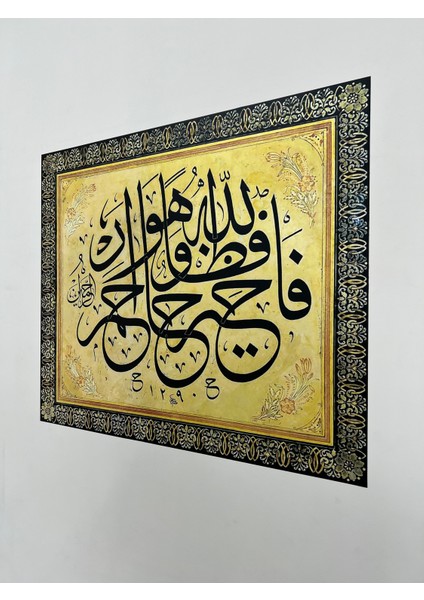 فالله خير حافظا وهو ارحم الراحمين
١٢٩٠